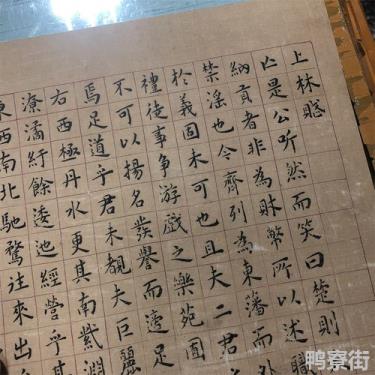 上林賦
亡是公听然而笑曰楚則
納貢者非為財幣所以述職
禁淫也今齊列為東藩而外
於義固未可也且夫二君
禮徒事爭游戲之樂苑囿
不可以揚名發譽而適足
焉足道乎君未覩夫巨麗
右西極丹水更其南紫淵
潦潏紆餘逶池經營乎其
東西南北馳騖往來出
鸭寮街